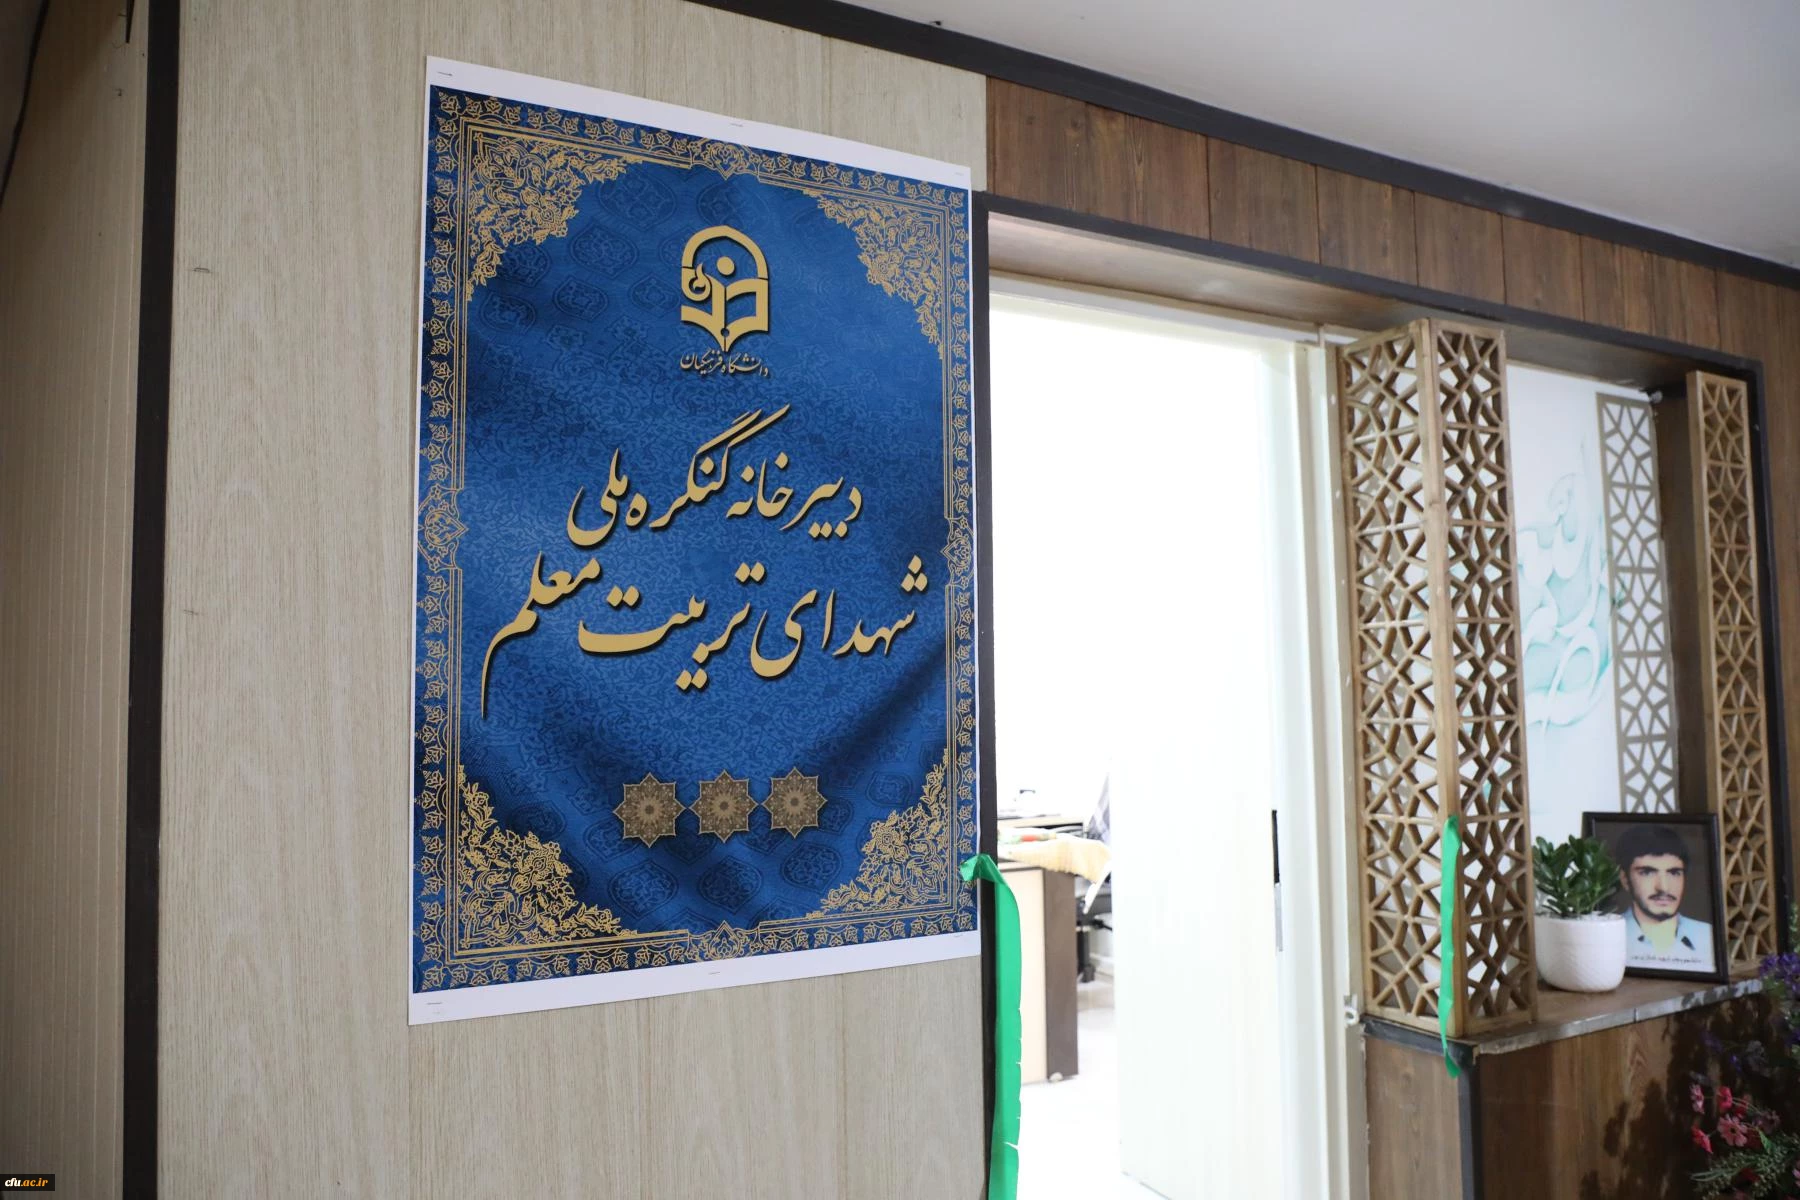 دانشگاه فرهنگیان
دبیرخانه کنگره ملی
شهدای تربیت معلم
cfu.ac.ir